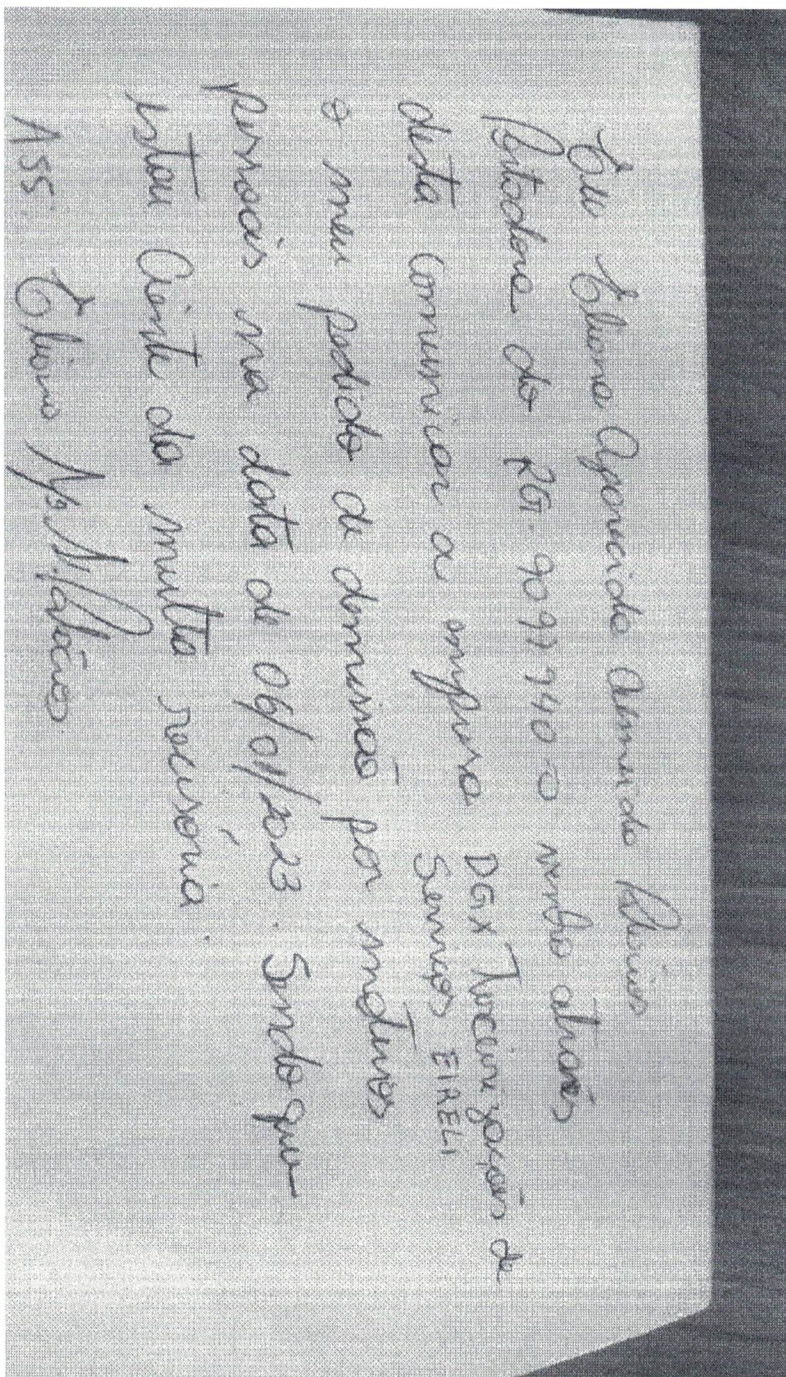 Eu Eliane Aparecida Almeida
Portadora do RG. 9097940-0 venho através
desta comunicar a empresa DGX Terceirizações de
Serviços EIRELI
o meu pedido de demissão por motivos
pessoais na data de 06/01/2023. Sendo que
estou Ciente da multa
ASS: Eliane Ap. A.